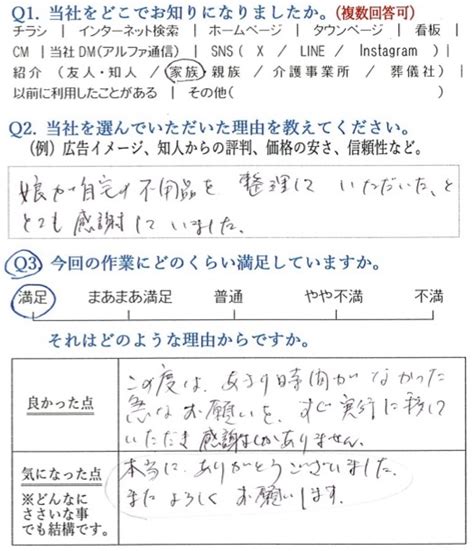 Q1. 当社をどこでお知りになりましたか。(複数回答可)
チラシ | インターネット検索 | ホームページ | タウンページ | 看板 |
CM | 当社DM(アルファ通信) | SNS ( X / LINE / Instagram ) |
紹介 (友人・知人 / 家族・親族 / 介護事業所 / 葬儀社) |
以前に利用したことがある | その他( )
Q2. 当社を選んでいただいた理由を教えてください。
(例) 広告イメージ、知人からの評判、価格の安さ、信頼性など。
娘が自宅の不用品を 整理して いただいた、と
とても 感謝して いました。
Q3. 今回の作業にどのくらい満足していますか。
満足 まあまあ満足 普通 やや不満 不満
それはどのような理由からですか。
良かった点
この度は、あまり時間がなかった
急なお願いを、すぐ実行に移して
いただき 感謝しかありません。
気になった点
※どんなに
ささいな事
でも結構です。
本当に、ありがとうございました。
また よろしく お願いします。